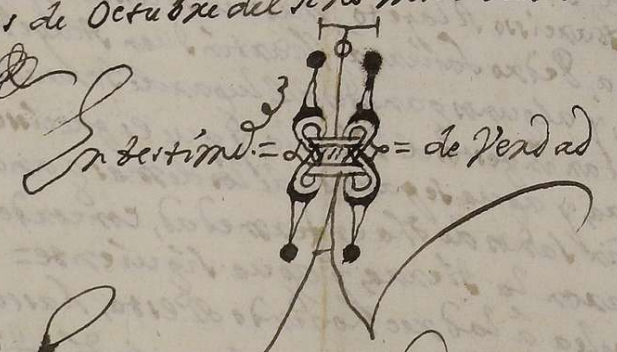 s de Octubre del
En testimo = = de Verdad